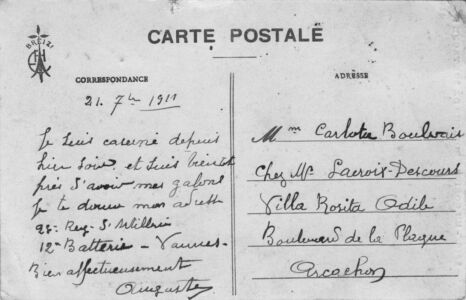 BREIZ
CARTE POSTALE
CORRESPONDANCE
ADRESSE
21. 7bre 1911
Je suis caserné depuis
hier soir et suis bientôt
près d'avoir mes galons
Je te donne mon adresse
Reg- d'Artillerie
12e Batterie - Vannes-
Bien affectueusement
Auguste
Mme Carlota Boulvais
Chez Mr Lacroix-Descours
Villa Rosita Odile
Boulevard de la Plage
Arcachon